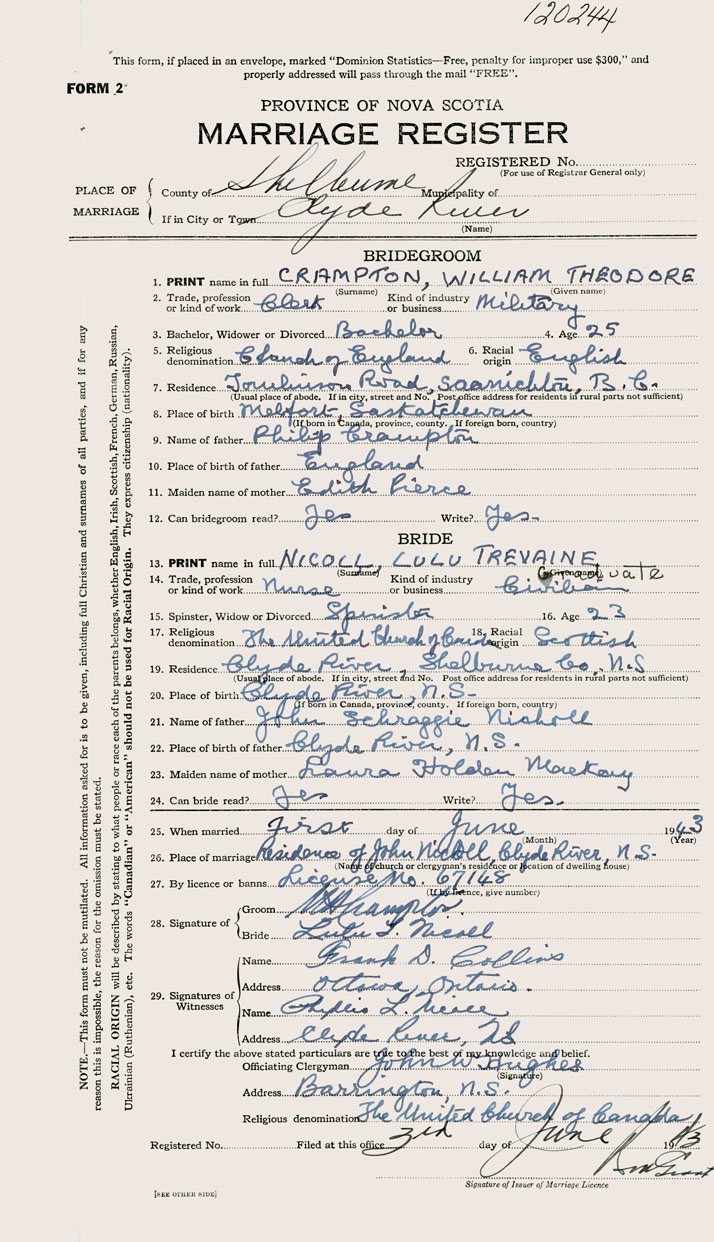 120244
This form, if placed in an envelope, marked "Dominion Statistics—Free, penalty for improper use $300," and
properly addressed will pass through the mail "FREE".
FORM 2
PROVINCE OF NOVA SCOTIA
MARRIAGE REGISTER
REGISTERED No.
(For use of Registrar General only)
PLACE OF MARRIAGE
County of Shelburne Municipality of
If in City or Town Clyde River
(Name)
BRIDEGROOM
1. PRINT name in full CRAMPTON, WILLIAM THEODORE
(Surname) (Given name)
2. Trade, profession or kind of work Clerk Kind of industry or business Military
3. Bachelor, Widower or Divorced Bachelor 4. Age 25
5. Religious denomination Church of England 6. Racial origin English
7. Residence Tomlinson Road, Saanichton, B.C.
(Usual place of abode. If in city, street and No. Post office address for residents in rural parts not sufficient)
8. Place of birth Melfort, Saskatchewan
(If born in Canada, province, county. If foreign born, country)
9. Name of father Philip Crampton
10. Place of birth of father England
11. Maiden name of mother Edith Pierce
12. Can bridegroom read? Yes Write? Yes
BRIDE
13. PRINT name in full NICOLL, LULU TREVAINE
(Surname) (Given name) Graduate
14. Trade, profession or kind of work Nurse Kind of industry or business Civilian
15. Spinster, Widow or Divorced Spinster 16. Age 23
17. Religious denomination The United Church of Canada 18. Racial origin Scottish
19. Residence Clyde River, Shelburne Co., N.S
(Usual place of abode. If in city, street and No. Post office address for residents in rural parts not sufficient)
20. Place of birth Clyde River, N.S.
(If born in Canada, province, county. If foreign born, country)
21. Name of father John Schraggie Nicholl
22. Place of birth of father Clyde River, N.S.
23. Maiden name of mother Laura Holden Mackay
24. Can bride read? Yes Write? Yes.
25. When married First day of June 1943
(Month) (Year)
26. Place of marriage Residence of John Nicholl, Clyde River, N.S.
(Name of church or clergyman's residence or location of dwelling house)
27. By licence or banns License No. 67148
(If by licence, give number)
28. Signature of
Groom Crampton
Bride Lulu T. Nicoll
29. Signatures of Witnesses
Name Frank D. Collins
Address Ottawa, Ontario.
Name Phyllis L.
Address Clyde River, NS
I certify the above stated particulars are true to the best of my knowledge and belief.
Officiating Clergyman John W Hughes
(Signature)
Address Barrington, N.S.
Religious denomination The United Church of Canada
Registered No. Filed at this office 3rd day of June 1943
Grant
Signature of Issuer of Marriage Licence
[SEE OTHER SIDE]
NOTE.—This form must not be mutilated. All information asked for is to be given, including full Christian and surnames of all parties, and if for any
reason this is impossible, the reason for the omission must be stated.
RACIAL ORIGIN will be described by stating to what people or race each of the parents belongs, whether English, Irish, Scottish, French, German, Russian,
Ukrainian (Ruthenian), etc. The words "Canadian" or "American" should not be used for Racial Origin. They express citizenship (nationality).